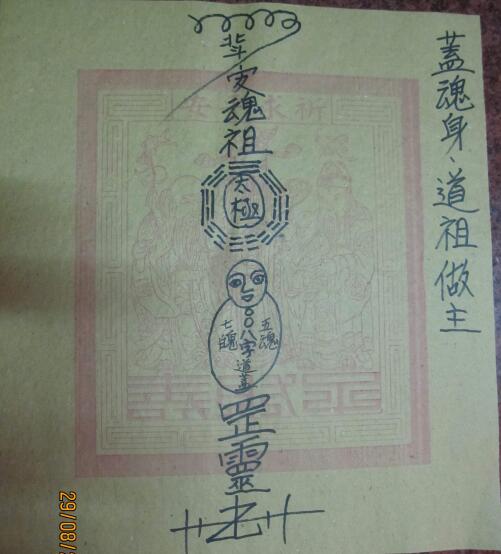 蓋魂身、道祖做主
安魂祖
太極
五魂
○○八字道蓋
七魄
罡靈
29/08/